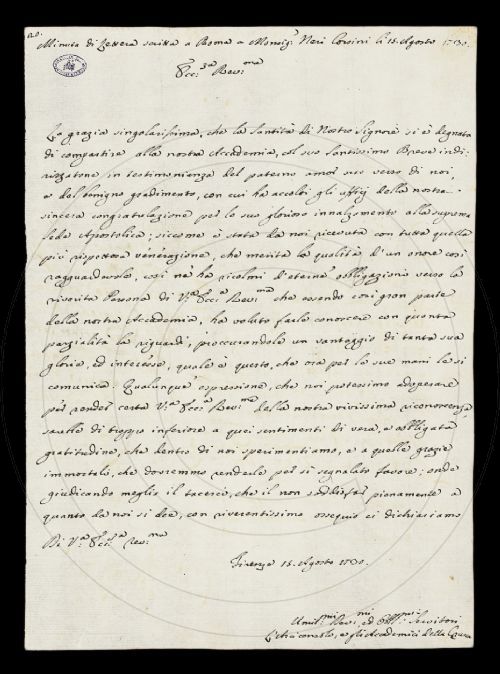 20.
Minuta di Lettera scritta a Roma a Monsig.r Neri Corsini li 15. Agosto 1730.
Ecc.za Rev.ma
La grazia singolarissima, che la Santità di Nostro Signore si è degnata
di compartire alla nostra Accademia, col suo Santissimo Breve indi-
rizzatone in testimonianza del paterno amor suo verso di noi,
e del benigno gradimento, con cui ha accolti gli uffizj della nostra
sincera congratulazione per lo suo glorioso innalzamento alla suprema
sede Apostolica; siccome è stata da noi ricevuta con tutta quella
più rispettosa venerazione, che merita la qualità d'un onore così
ragguardevole, così ne ha ricolmi d'eterna obbligazione verso la
riverita Persona di V.a Ecc.a Rev.ma che essendo così gran parte
della nostra Accademia, ha voluto farle conoscere con quanta
parzialità la riguardi, proccurandole un vantaggio di tanta sua
gloria, ed interesse, quale è questo, che ora per le sue mani le si
comunica. Qualunque espressione, che noi potessimo adoperare
per render certa V.a Ecc.a Rev.ma della nostra vivissima riconoscenza,
sarebbe di troppo inferiore a quei sentimenti di vera, e obbligata
gratitudine, che dentro di noi sperimentiamo, e a quelle grazie
immortali, che dovremmo renderle per sì segnalato favore; onde
giudicando meglio il tacere, che il non soddisfar pienamente a
quanto da noi si dee, con riverentissimo ossequio ci dichiariamo
Di V.a Ecc.a Rev.ma
Firenze 15. Agosto 1730.
Umil.mi Dev.mi ed Obb.mi Servitori
L'Arciconsolo, e gli Accademici della Crusca